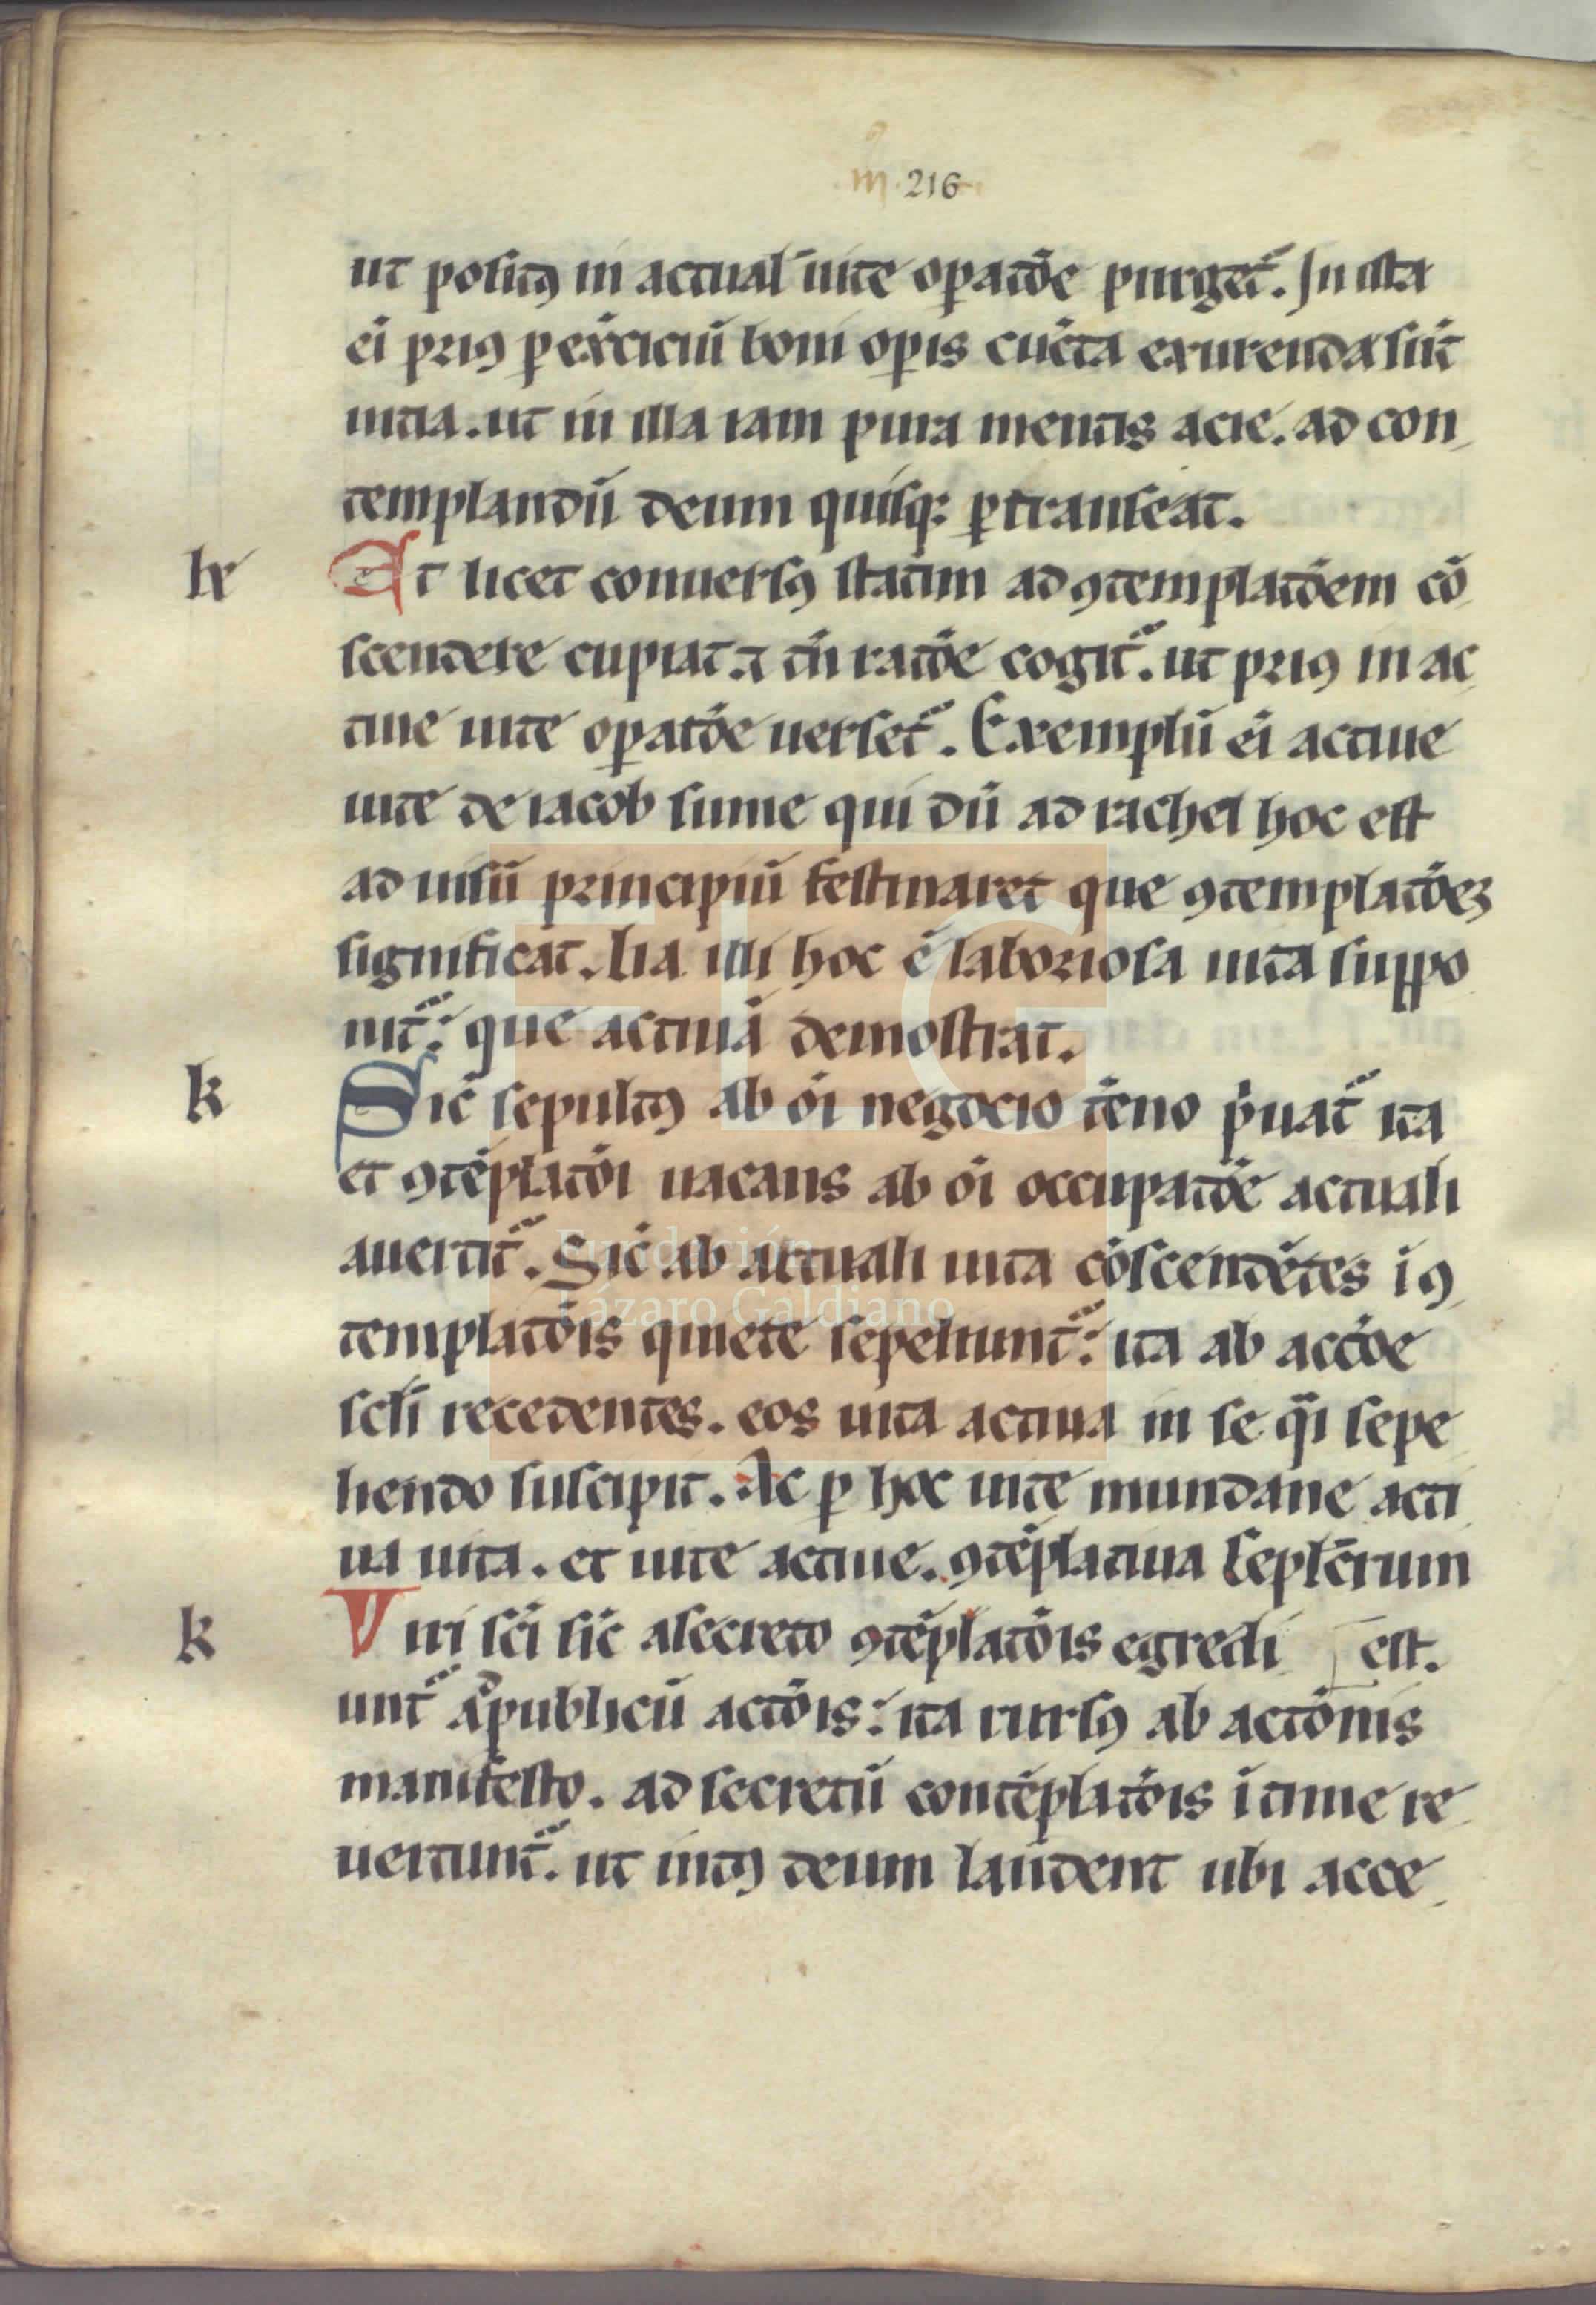 m. 216
ut positꝰ in actual̄ uite oꝑatōe purget᷑. In ista
ei prius ꝑ exercitiū boni oꝑis cūcta exurenda sūt
uitia. ut in illa iam pura mentis acie. ad con
templandū deum quisqꝫ ꝑtranseat.
lx
Et licet conuersꝰ statim ad ꝯtemplatōem cō
scendere cupiat. ⁊ tn̄ ratōe cogit᷑. ut priꝰ in ac
tiue uite oꝑatōe uerset᷑. Exemplū ei actiue
uite de iacob sume qui dū ad rachel hoc est
ad uisū principiū festinaret que ꝯtemplatōeꝫ
significat. lia illi hoc ē laboriosa uita suppo
nit᷑: que actiuā demostrat.
k
Sic̄ sepultꝰ ab oi negocio t̄eno p̄uat᷑ ita
et ꝯtēplatōi uacans ab oi occupatōe actuali
auertit᷑. Sic̄ ab actuali uita cōscendētes i ꝯ
templatōis quiete sepeliunt᷑: ita ab acctōe
scl̄i recedentes. eos uita actiua in se q̄i sepe
liendo suscipit. Ac ꝑ hoc uite mundane acti
ua uita. et uite actiue. ꝯtēplatiua seplc̄rum
k
Viri sc̄i sic̄ a secreto ꝯtēplatōis egredi est.
unt᷑ a᷒publicū actōis: ita rursꝰ ab actōnis
manifesto. ad secretū contēplatōis ītime re
uertunt᷑. ut intꝰ deum laudent ubi acce
Fundación
Lázaro Galdiano
FLG